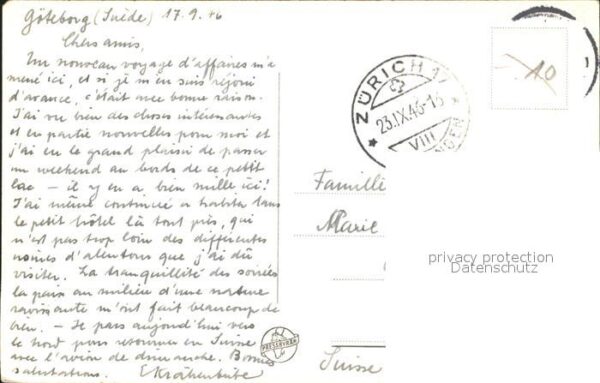 Göteborg (Suède) 17.9.46
Chers amis,
Un nouveau voyage d'affaires m'a
mené ici, et si je m'en suis réjoui
d'avance, c'était avec bonne raison.
J'ai vu bien des choses intéressantes
et en partie nouvelles pour moi et
j'ai eu le grand plaisir de passer
un weekend au bords de ce petit
lac – il y en a bien mille ici!
J'ai même continué a habiter dans
le petit hôtel là tout près, qui
n'est pas trop loin des différentes
d'alentours que j'ai dû
visiter. La tranquillité des soirées
la paix au milieu d'une nature
ravissante m'ont fait beaucoup de
bien. – Je pars aujourd'hui vers
le nord pour retourner en Suisse
avec l'avion de dimanche. Bonnes
salutations. Krähenbühl
PRESSBYRÅN
ZÜRICH
23.IX.46-
VIII
10
Famille
Marie
privacy protection
Datenschutz
Suisse